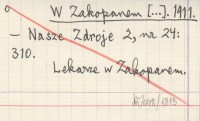 W Zakopanem [...]. 1911.
— Nasze Zdroje 2, nr 24:
310.
Lekarze w Zakopanem.